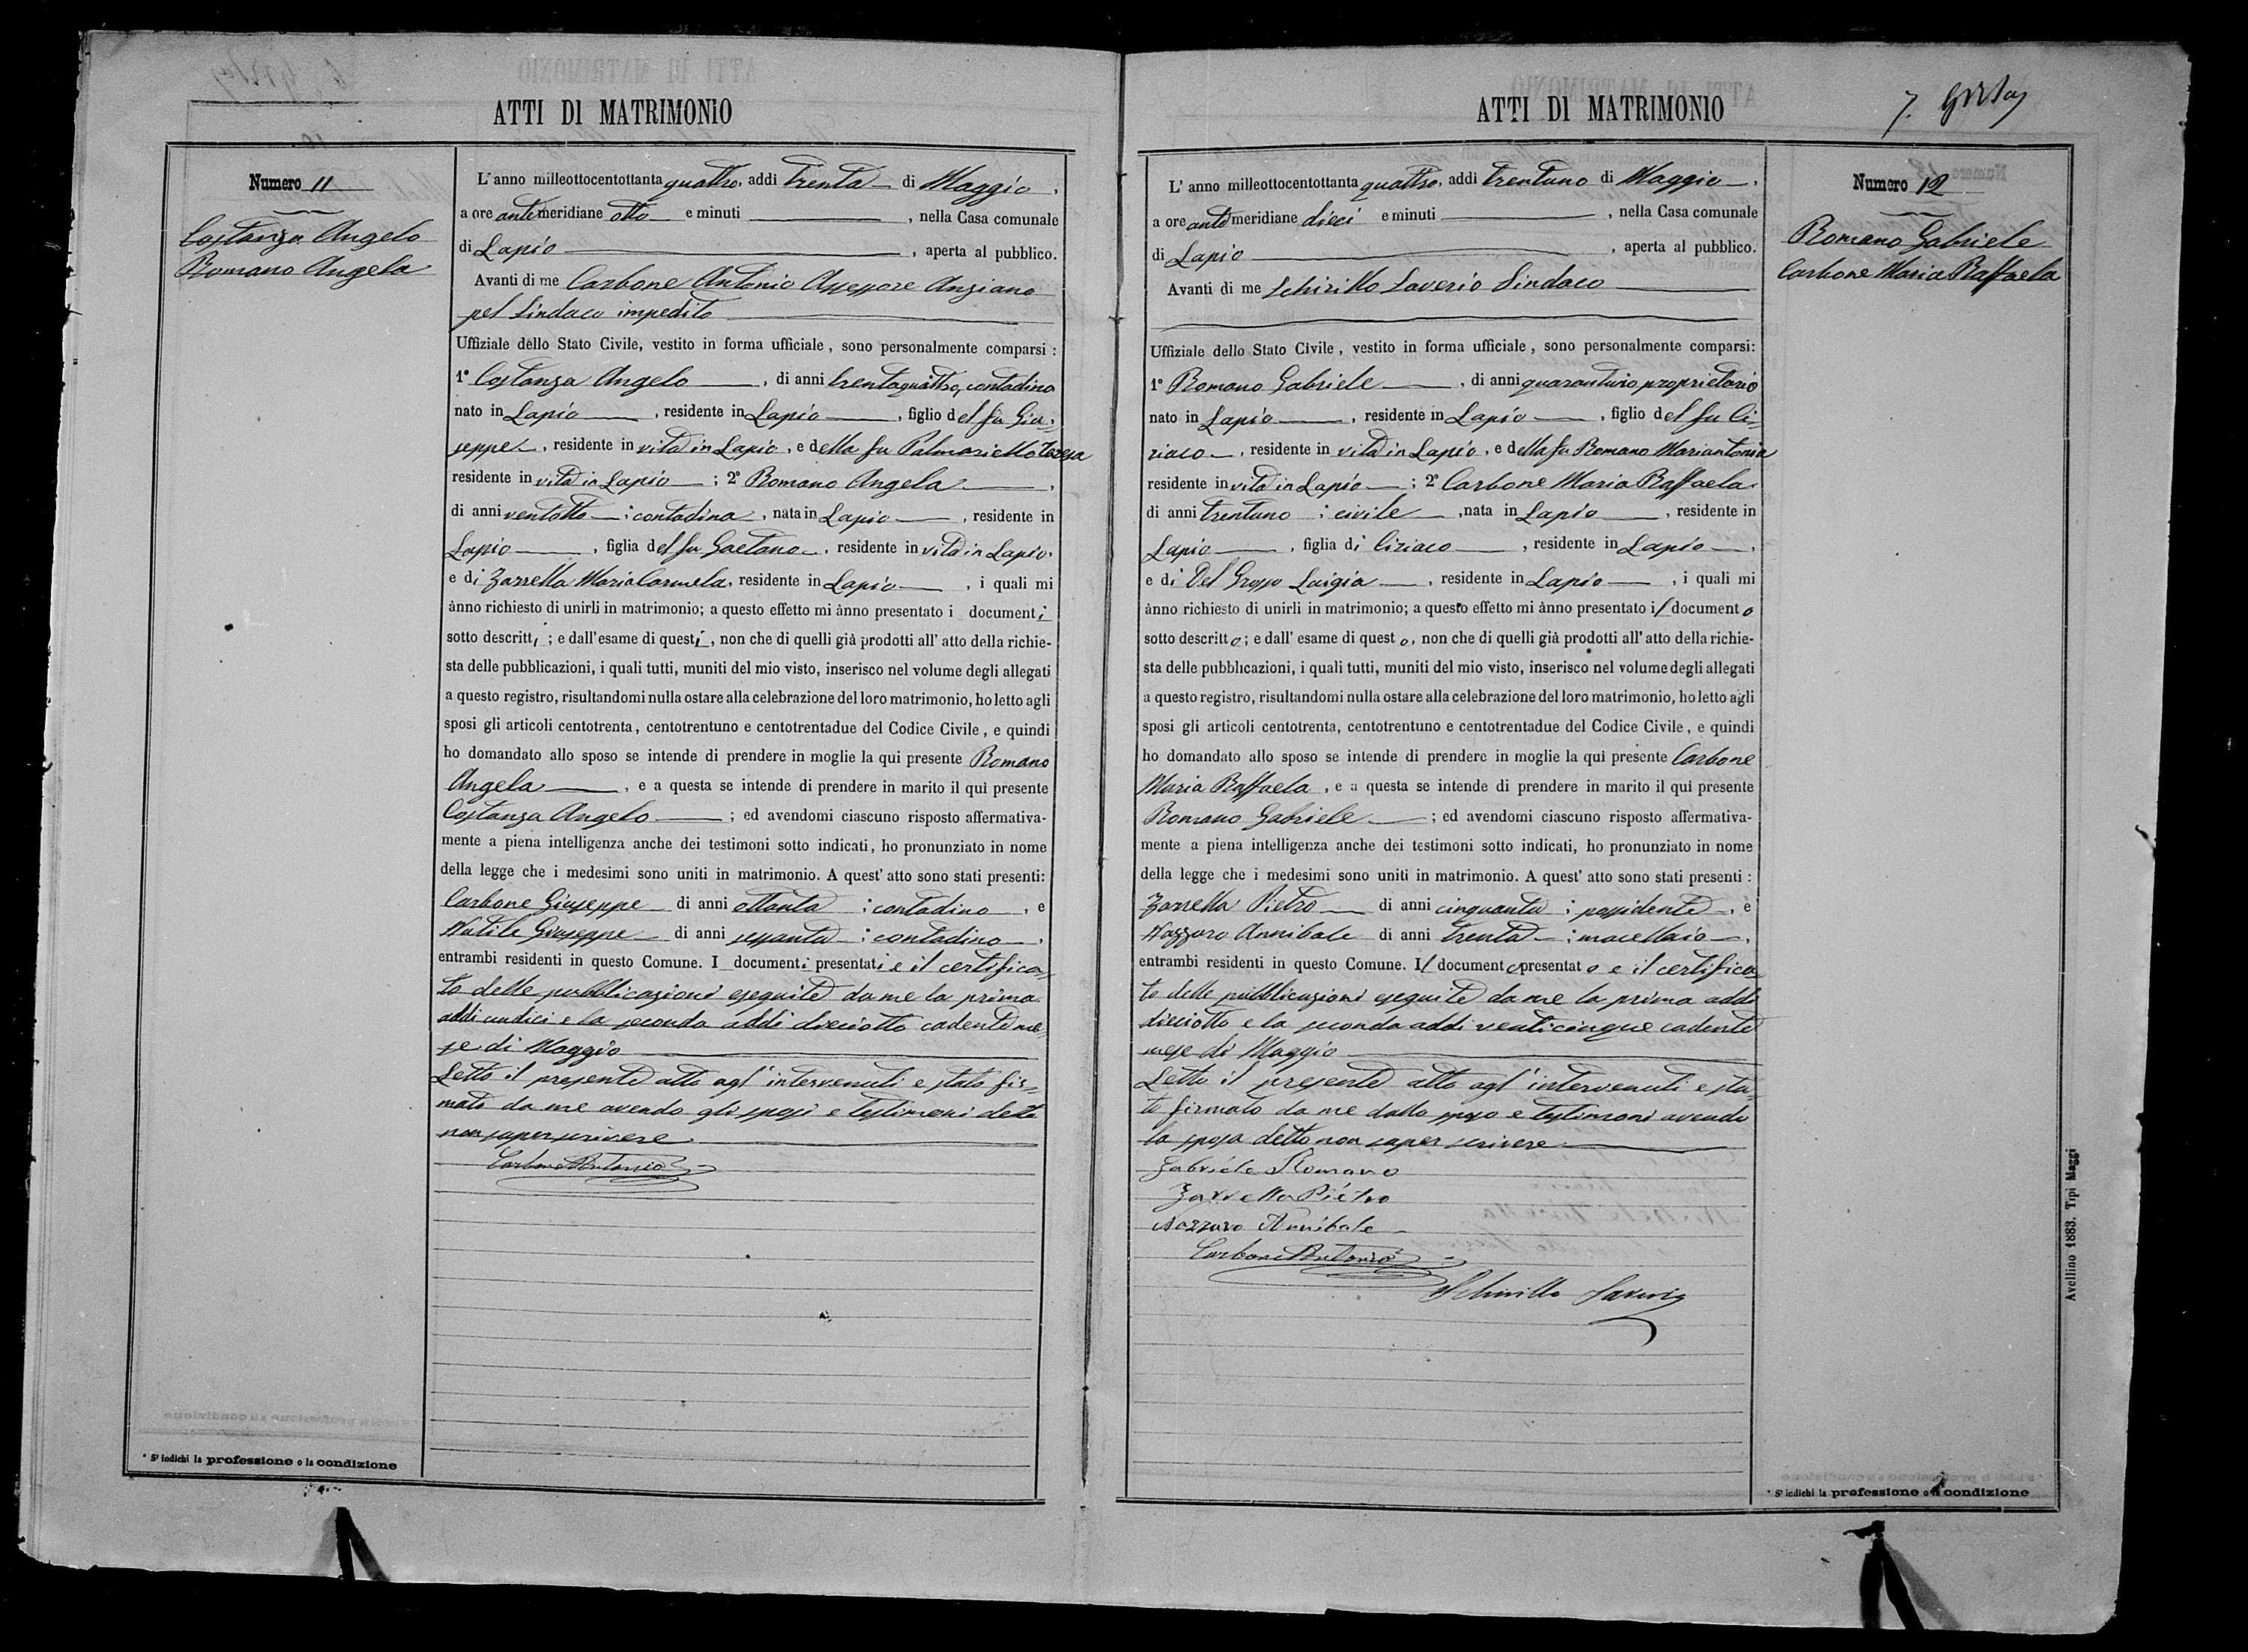 ATTI DI MATRIMONIO
Numero 11
Costanza Angelo
Romano Angela
L'anno milleottocentottanta quattro, addì trenta di Maggio,
a ore antimeridiane otto e minuti , nella Casa comunale
di Lapio , aperta al pubblico.
Avanti di me Carbone Antonio Assessore Anziano
pel Sindaco impedito
Uffiziale dello Stato Civile, vestito in forma ufficiale, sono personalmente comparsi:
1° Costanza Angelo , di anni trentaquattro, contadino
nato in Lapio , residente in Lapio , figlio del fu Giu-
seppe , residente in vita in Lapio, e della fu Palmariello Teresa
residente in vita in Lapio ; 2° Romano Angela ,
di anni ventotto ; contadina , nata in Lapio , residente in
Lapio , figlia del fu Gaetano , residente in vita in Lapio,
e di Zarrella Maria Carmela, residente in Lapio , i quali mi
ànno richiesto di unirli in matrimonio; a questo effetto mi ànno presentato i documenti
sotto descritti; e dall'esame di questi, non che di quelli già prodotti all'atto della richie-
sta delle pubblicazioni, i quali tutti, muniti del mio visto, inserisco nel volume degli allegati
a questo registro, risultandomi nulla ostare alla celebrazione del loro matrimonio, ho letto agli
sposi gli articoli centotrenta, centotrentuno e centotrentadue del Codice Civile, e quindi
ho domandato allo sposo se intende di prendere in moglie la qui presente Romano
Angela , e a questa se intende di prendere in marito il qui presente
Costanza Angelo ; ed avendomi ciascuno risposto affermativa-
mente a piena intelligenza anche dei testimoni sotto indicati, ho pronunziato in nome
della legge che i medesimi sono uniti in matrimonio. A quest'atto sono stati presenti:
Carbone Giuseppe di anni ottanta ; contadino , e
Natile Giuseppe di anni sessanta ; contadino ,
entrambi residenti in questo Comune. I documenti presentati e il certifica-
to delle pubblicazioni eseguite da me la prima
addì undici e la seconda addì dieciotto cadente me-
se di Maggio
Letto il presente atto agl'intervenuti e stato fir-
mato da me avendo gli sposi e testimoni detto
non saper scrivere
Carbone Antonio
ATTI DI MATRIMONIO
7.
Numero 12
Romano Gabriele
Carbone Maria Raffaela
L'anno milleottocentottanta quattro, addì trentuno di Maggio ,
a ore antimeridiane dieci e minuti , nella Casa comunale
di Lapio , aperta al pubblico.
Avanti di me Schirillo Saverio Sindaco
Uffiziale dello Stato Civile, vestito in forma ufficiale, sono personalmente comparsi:
1° Romano Gabriele , di anni quarantuno proprietario
nato in Lapio , residente in Lapio , figlio del fu Ci-
riaco , residente in vita in Lapio, e della fu Romano Mariantonia
residente in vita in Lapio ; 2° Carbone Maria Raffaela,
di anni trentuno ; civile , nata in Lapio , residente in
Lapio , figlia di Ciriaco , residente in Lapio ,
e di Del Grosso Luigia , residente in Lapio , i quali mi
ànno richiesto di unirli in matrimonio; a questo effetto mi ànno presentato il documento
sotto descritto; e dall'esame di questo, non che di quelli già prodotti all'atto della richie-
sta delle pubblicazioni, i quali tutti, muniti del mio visto, inserisco nel volume degli allegati
a questo registro, risultandomi nulla ostare alla celebrazione del loro matrimonio, ho letto agli
sposi gli articoli centotrenta, centotrentuno e centotrentadue del Codice Civile, e quindi
ho domandato allo sposo se intende di prendere in moglie la qui presente Carbone
Maria Raffaela , e a questa se intende di prendere in marito il qui presente
Romano Gabriele ; ed avendomi ciascuno risposto affermativa-
mente a piena intelligenza anche dei testimoni sotto indicati, ho pronunziato in nome
della legge che i medesimi sono uniti in matrimonio. A quest'atto sono stati presenti:
Zarrella Pietro di anni cinquanta ; possidente , e
Nazzaro Annibale di anni trenta ; macellaio ,
entrambi residenti in questo Comune. Il documento presentato e il certifica-
to delle pubblicazioni eseguite da me la prima addì
dieciotto e la seconda addì venticinque cadente
mese di Maggio
Letto il presente atto agl'intervenuti e sta-
to firmato da me dallo sposo e testimoni avendo
la sposa detto non saper scrivere
Gabriele Romano
Zarrella Pietro
Nazzaro Annibale
Carbone Antonio
Schirillo Saverio
* S'indichi la professione o la condizione
* S'indichi la professione o la condizione
Avellino 1883. Tipi Maggi